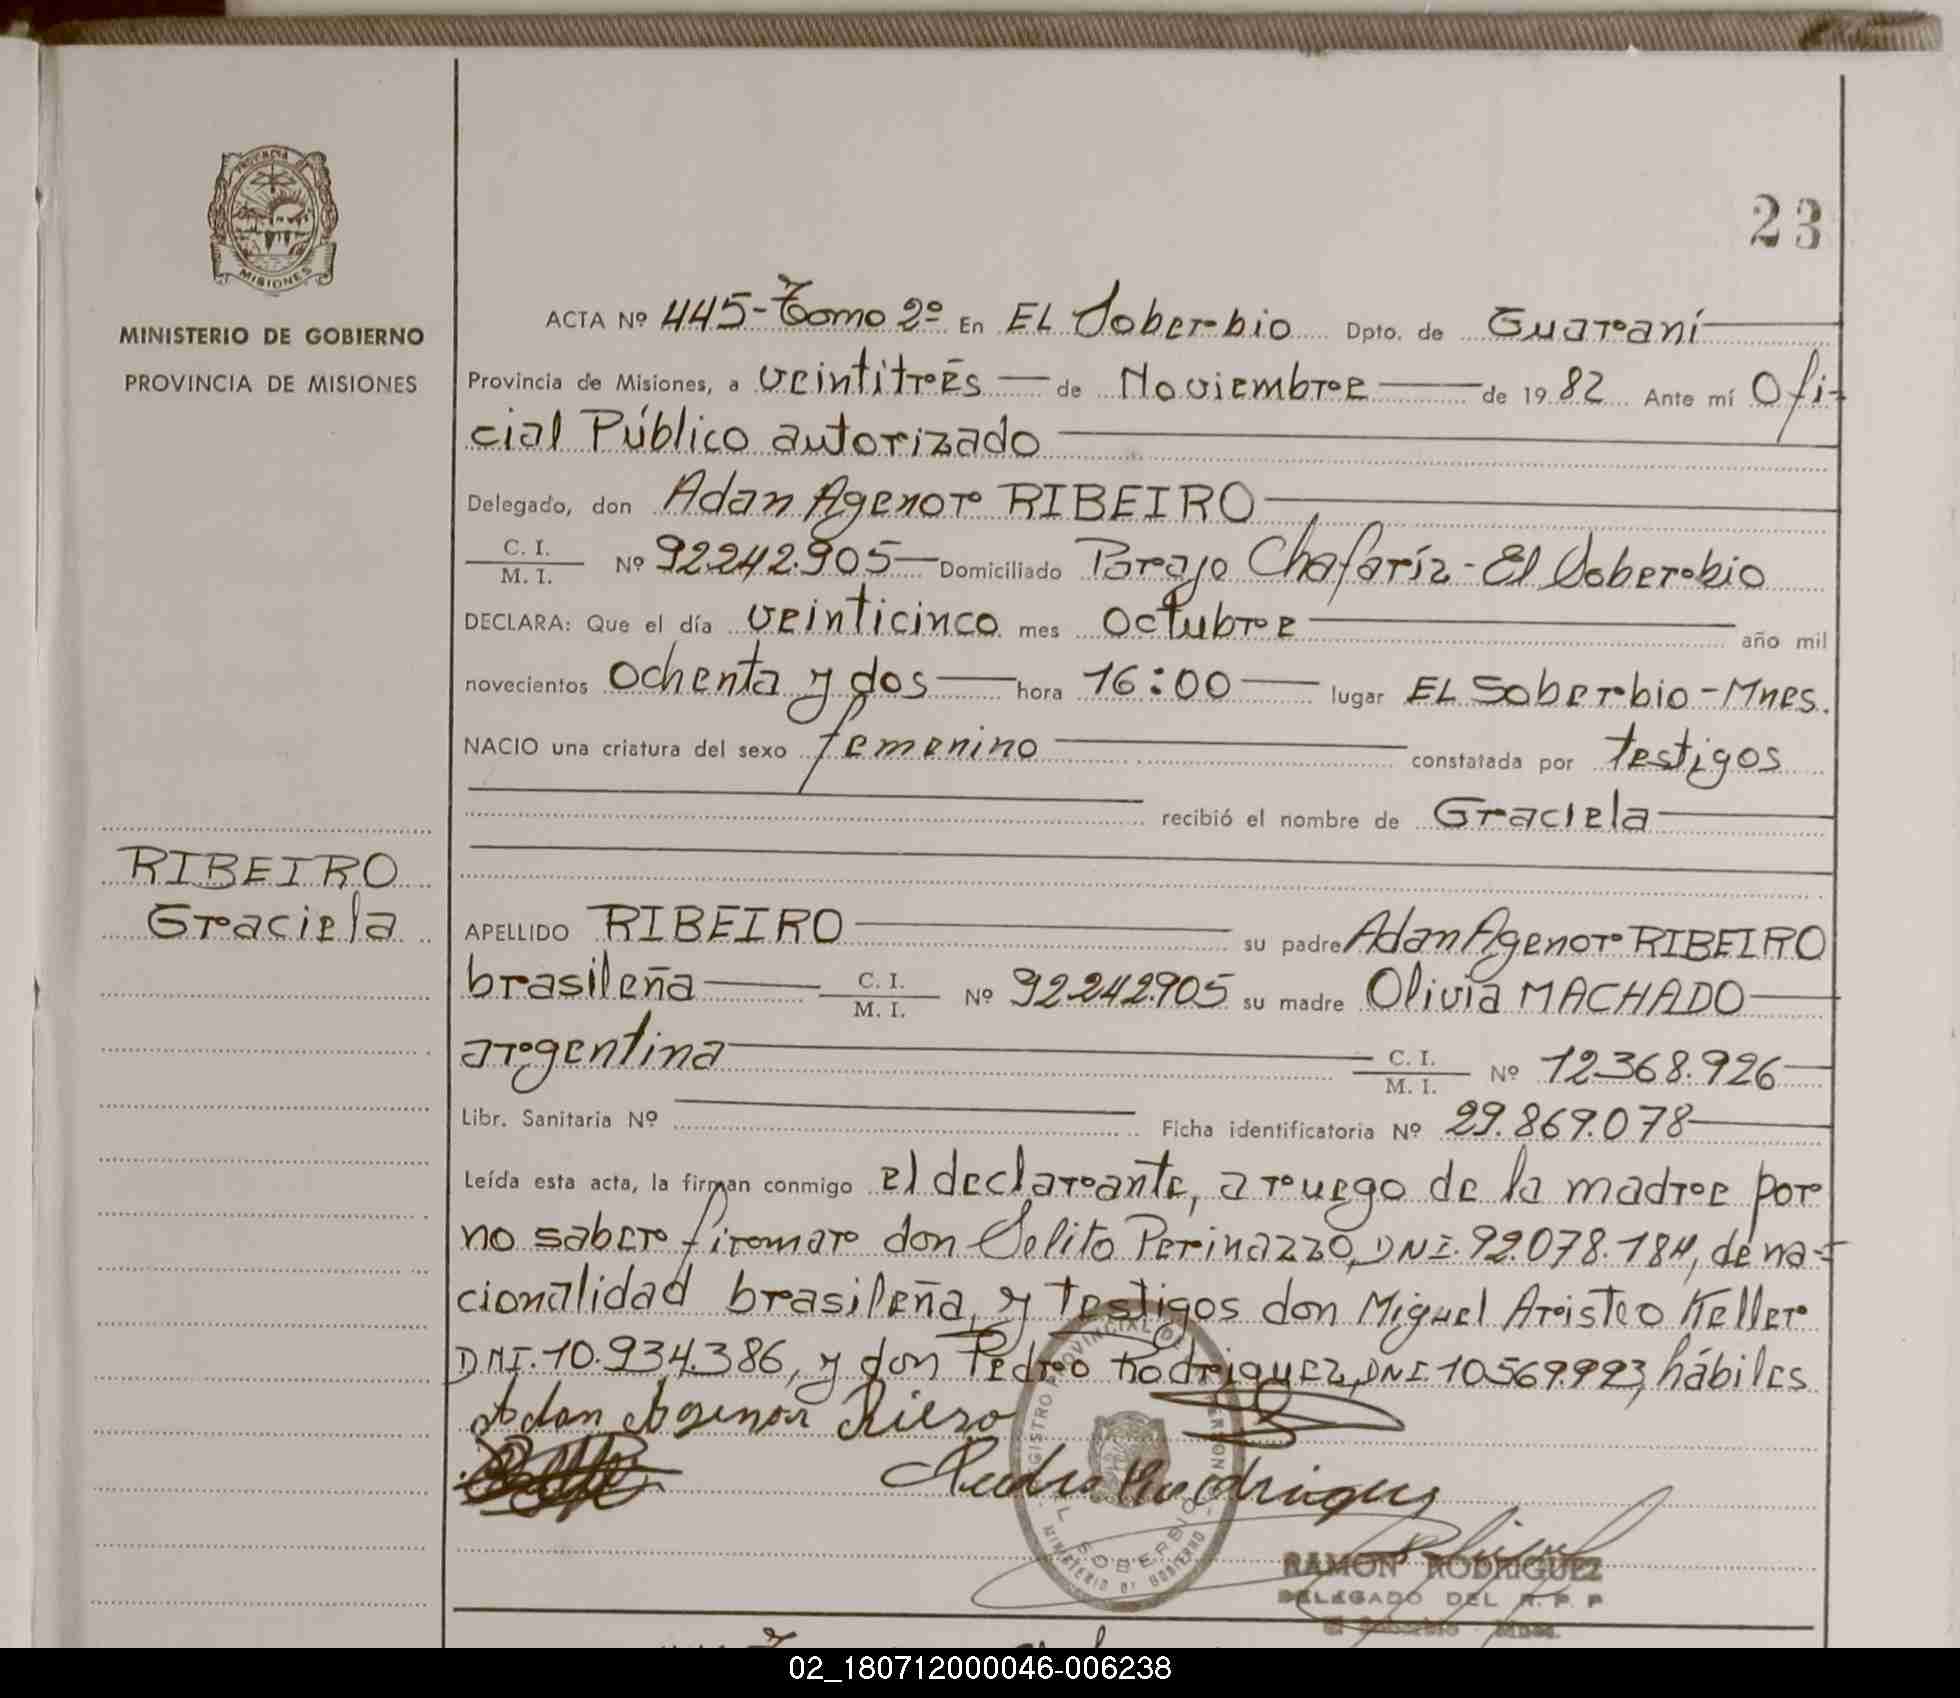 23
PROVINCIA DE
MISIONES
MINISTERIO DE GOBIERNO
PROVINCIA DE MISIONES
RIBEIRO
Graciela
ACTA Nº 445-Tomo 2º En EL Soberbio Dpto. de Guaraní
Provincia de Misiones, a veintitrés de Noviembre de 1982 Ante mí Ofi-
cial Público autorizado
Delegado, don Adan Agenor RIBEIRO
C. I. / M. I. Nº 92.242.905 Domiciliado Paraje Chafaríz - El Soberbio
DECLARA: Que el día veinticinco mes Octubre año mil
novecientos ochenta y dos hora 16:00 lugar EL Soberbio - Mnes.
NACIO una criatura del sexo femenino constatada por testigos
recibió el nombre de Graciela
APELLIDO RIBEIRO su padre Adan Agenor RIBEIRO
brasileña C. I. / M. I. Nº 92.242.905 su madre Olivia MACHADO
argentina C. I. / M. I. Nº 12.368.926
Libr. Sanitaria Nº Ficha identificatoria Nº 29.869.078
Leída esta acta, la firman conmigo el declarante, a ruego de la madre por
no saber firmar don Selito Perinazzo, DNI. 92.078.184, de na-
cionalidad brasileña, y testigos don Miguel Aristeo Keller
DNI. 10.934.386, y don Pedro Rodriguez, DNI. 10.569.993, hábiles
Adan Agenor
Pedro Rodrigues
REGISTRO PROVINCIAL DE
EL SOBERBIO
MINISTERIO DE GOBIERNO
RAMON RODRIGUEZ
DELEGADO DEL R. P. P
El Soberbio - Mnes.
02_180712000046-006238